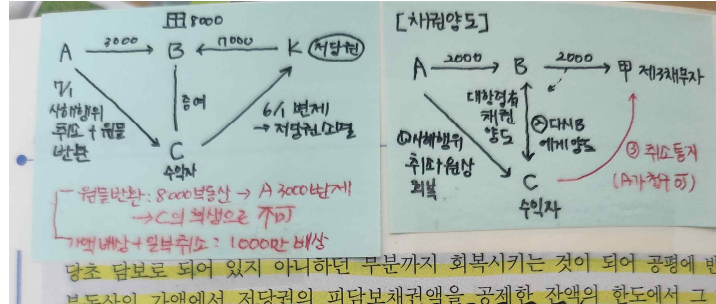 田 8000
A 3000 B 7000 K 저당권
7/1
사해행위
취소 + 원물
반환
증여
6/1 변제
→ 저당권소멸
C
수익자
원물반환 : 8000부동산 → A 3000변제
→ C의 희생으로 不可
가액배상 + 일부취소 : 1000만 배상
[채권양도]
A 2000 B 2000 甲 제3채무자
대항력有
채권
양도
① 사해행위
취소와 원상
회복
② 다시 B
에게 양도
③ 취소통지
(A가 청구 可)
C
수익자
당초 담보로 되어 있지 아니하던 부분까지 회복시키는 것이 되어 공평에 반
부동산의 가액에서 저당권의 피담보채권액을 공제한 잔액의 한도에서 그